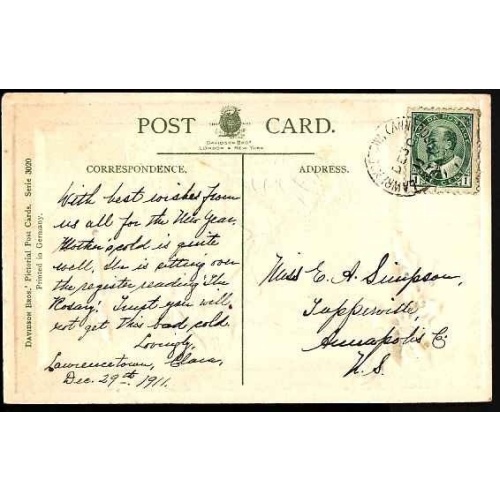 POST CARD.
DAVIDSON BROS
LONDON & NEW YORK
CORRESPONDENCE.
ADDRESS.
DAVIDSON BROS.' Pictorial Post Cards. Serie 3020
Printed in Germany.
With best wishes from
us all for the New Year.
Mother's cold is quite
well, She is sitting over
the register reading "The
Rosary". Trust you will
not get this bad cold.
Lovingly,
Lawrencetown, Clara,
Dec. 29th, 1911.
Miss E. A. Simpson,
Tupperville,
Annapolis Co
N.S.